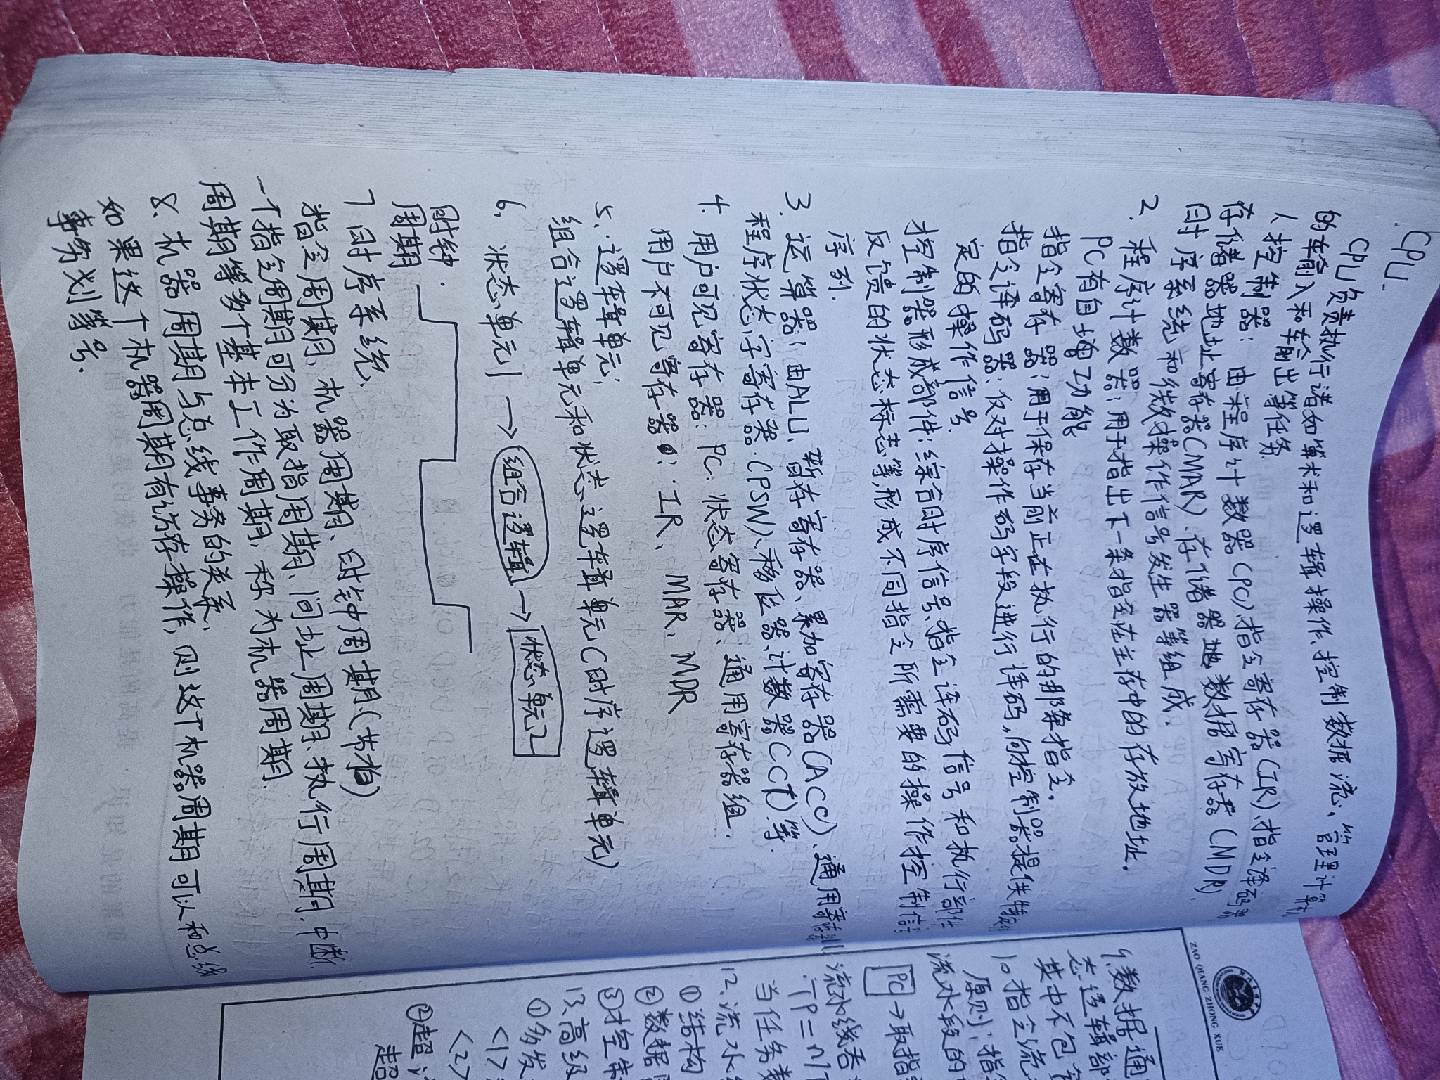 CPU.
CPU负责执行诸如算术和逻辑操作、控制数据流、管理计算机
的输入和输出等任务.
1、控制器：由程序计数器(PC)、指令寄存器(IR)、指令译码器
存储器地址寄存器(MAR)、存储器地数据寄存器(MDR)、
时序系统和微操作信号发生器等组成.
2、程序计数器：用于指出下一条指令在主存中的存放地址.
PC有自增功能
指令寄存器：用于保存当前正在执行的那条指令.
指令译码器：仅对操作码字段进行译码,向控制器提供特定
定的操作信号.
控制器形成部件：综合时序信号、指令译码信号和执行部件
反馈的状态标志等,形成不同指令所需要的操作控制信号
序列.
3、运算器：由ALU、暂存寄存器、累加寄存器(ACC)、通用寄存器
程序状态字寄存器(PSW)、移位器、计数器(CT)等.
4、用户可见寄存器：PC、状态寄存器、通用寄存器组.
用户不可见寄存器：IR、MAR、MDR
5、逻辑单元；
组合逻辑单元和状态逻辑单元(时序逻辑单元)
6、状态单元1→组合逻辑→状态单元2
时钟
周期
7 时序系统.
指令周期、机器周期、时钟周期(节拍)
一个指令周期可分为取指周期、间址周期、执行周期、中断
周期等多个基本工作周期,称为机器周期.
8、机器周期与总线事务的关系.
如果这个机器周期有访存操作,则这个机器周期可以和总线
事务划等号.
ZAO QIANG ZHONG XUE
9、数据通
态逻辑部
其中不包
10 指令流
原则：指
流水段的
PC→取指
流水线吞
TP=n/T
当任务数
12、流水
①结构
②数据
③控制
13、高级
①多发
<1>
<2>
②超流
超